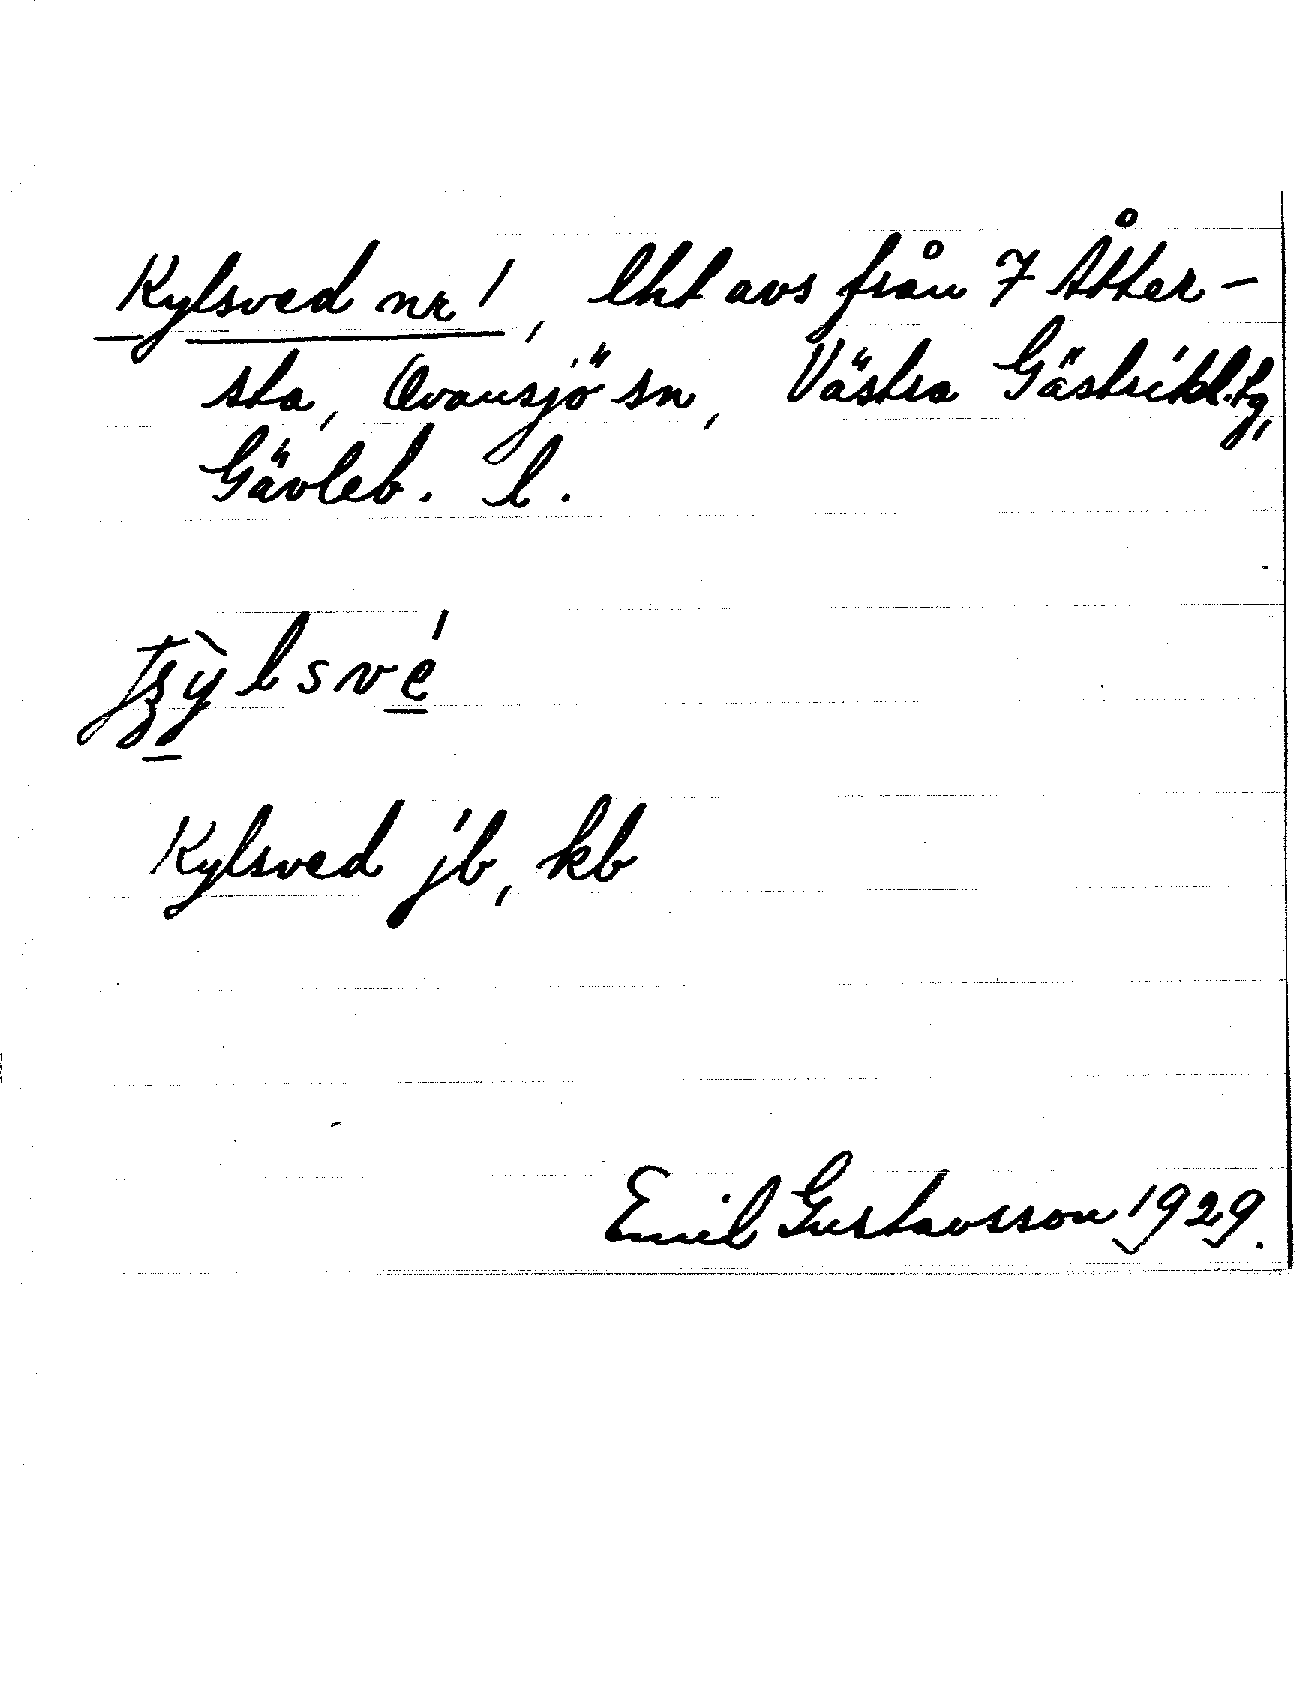 Kylsved nr 1, lht avs från 7 Åtter-
sta, Ovansjö sn, Västra Gästrikl. tg,
Gävleb. l.
ỳlsvé
Kylsved jb, kb
Emil Gustavsson 1929.